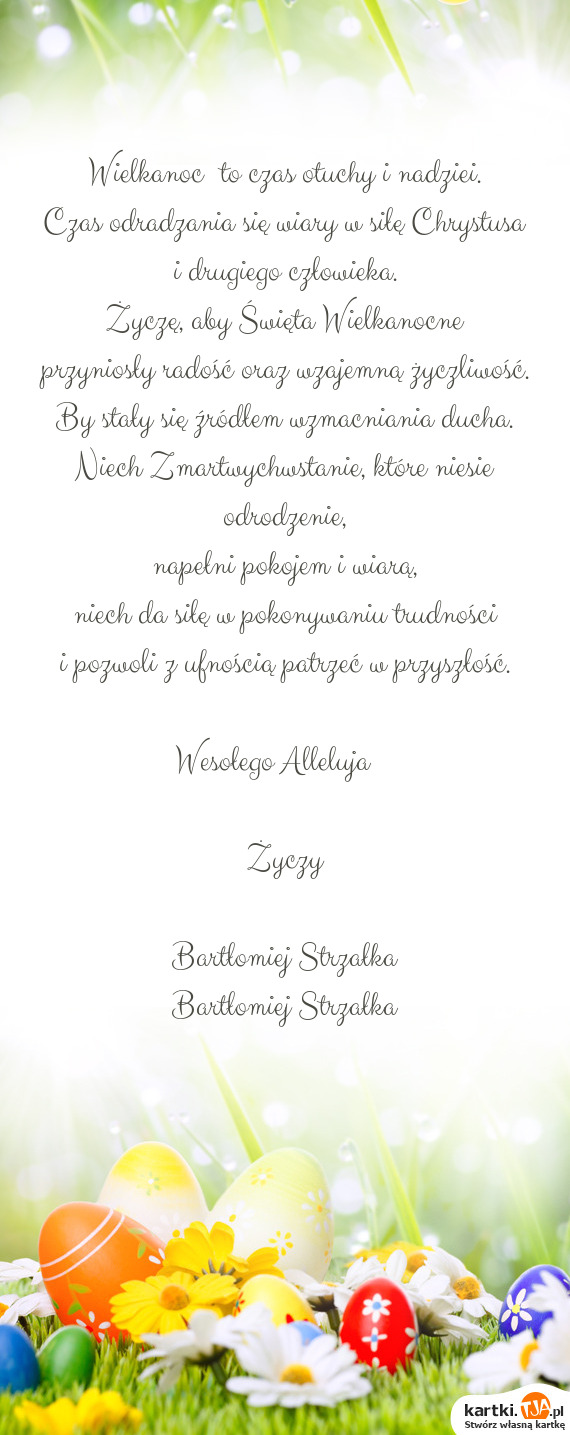 Wielkanoc to czas otuchy i nadziei.
Czas odradzania się wiary w siłę Chrystusa
i drugiego człowieka.
Życzę, aby Święta Wielkanocne
przyniosły radość oraz wzajemną życzliwość.
By stały się źródłem wzmacniania ducha.
Niech Zmartwychwstanie, które niesie
odrodzenie,
napełni pokojem i wiarą,
niech da siłę w pokonywaniu trudności
i pozwoli z ufnością patrzeć w przyszłość.
Wesołego Alleluja
Życzy
Bartłomiej Strzałka
Bartłomiej Strzałka
kartki.TJA.pl
Stwórz własną kartkę